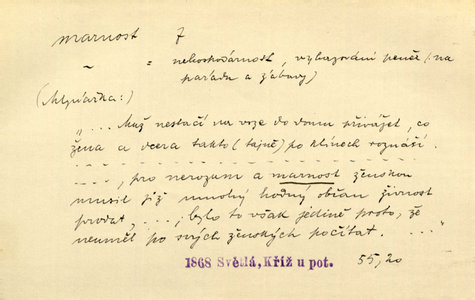 marnost f
~ = nehospodárnost, vyhazování peněz (: na
parádu a zábavy)
(Mlynářka:)
"... Muž nestačí na voze do domu přivážet, co
žena a dcera takto (tajně) po klínech roznáší.
- - - - - - - - - - - - - - -
- - - -, pro nerozum a marnost ženskou
musil již mnohý hodný občan živnost
prodat, ..., bylo to však jedině proto, že
neuměl po svých ženských počítat. ...."
1868 Světlá, Kříž u pot. 55, 20